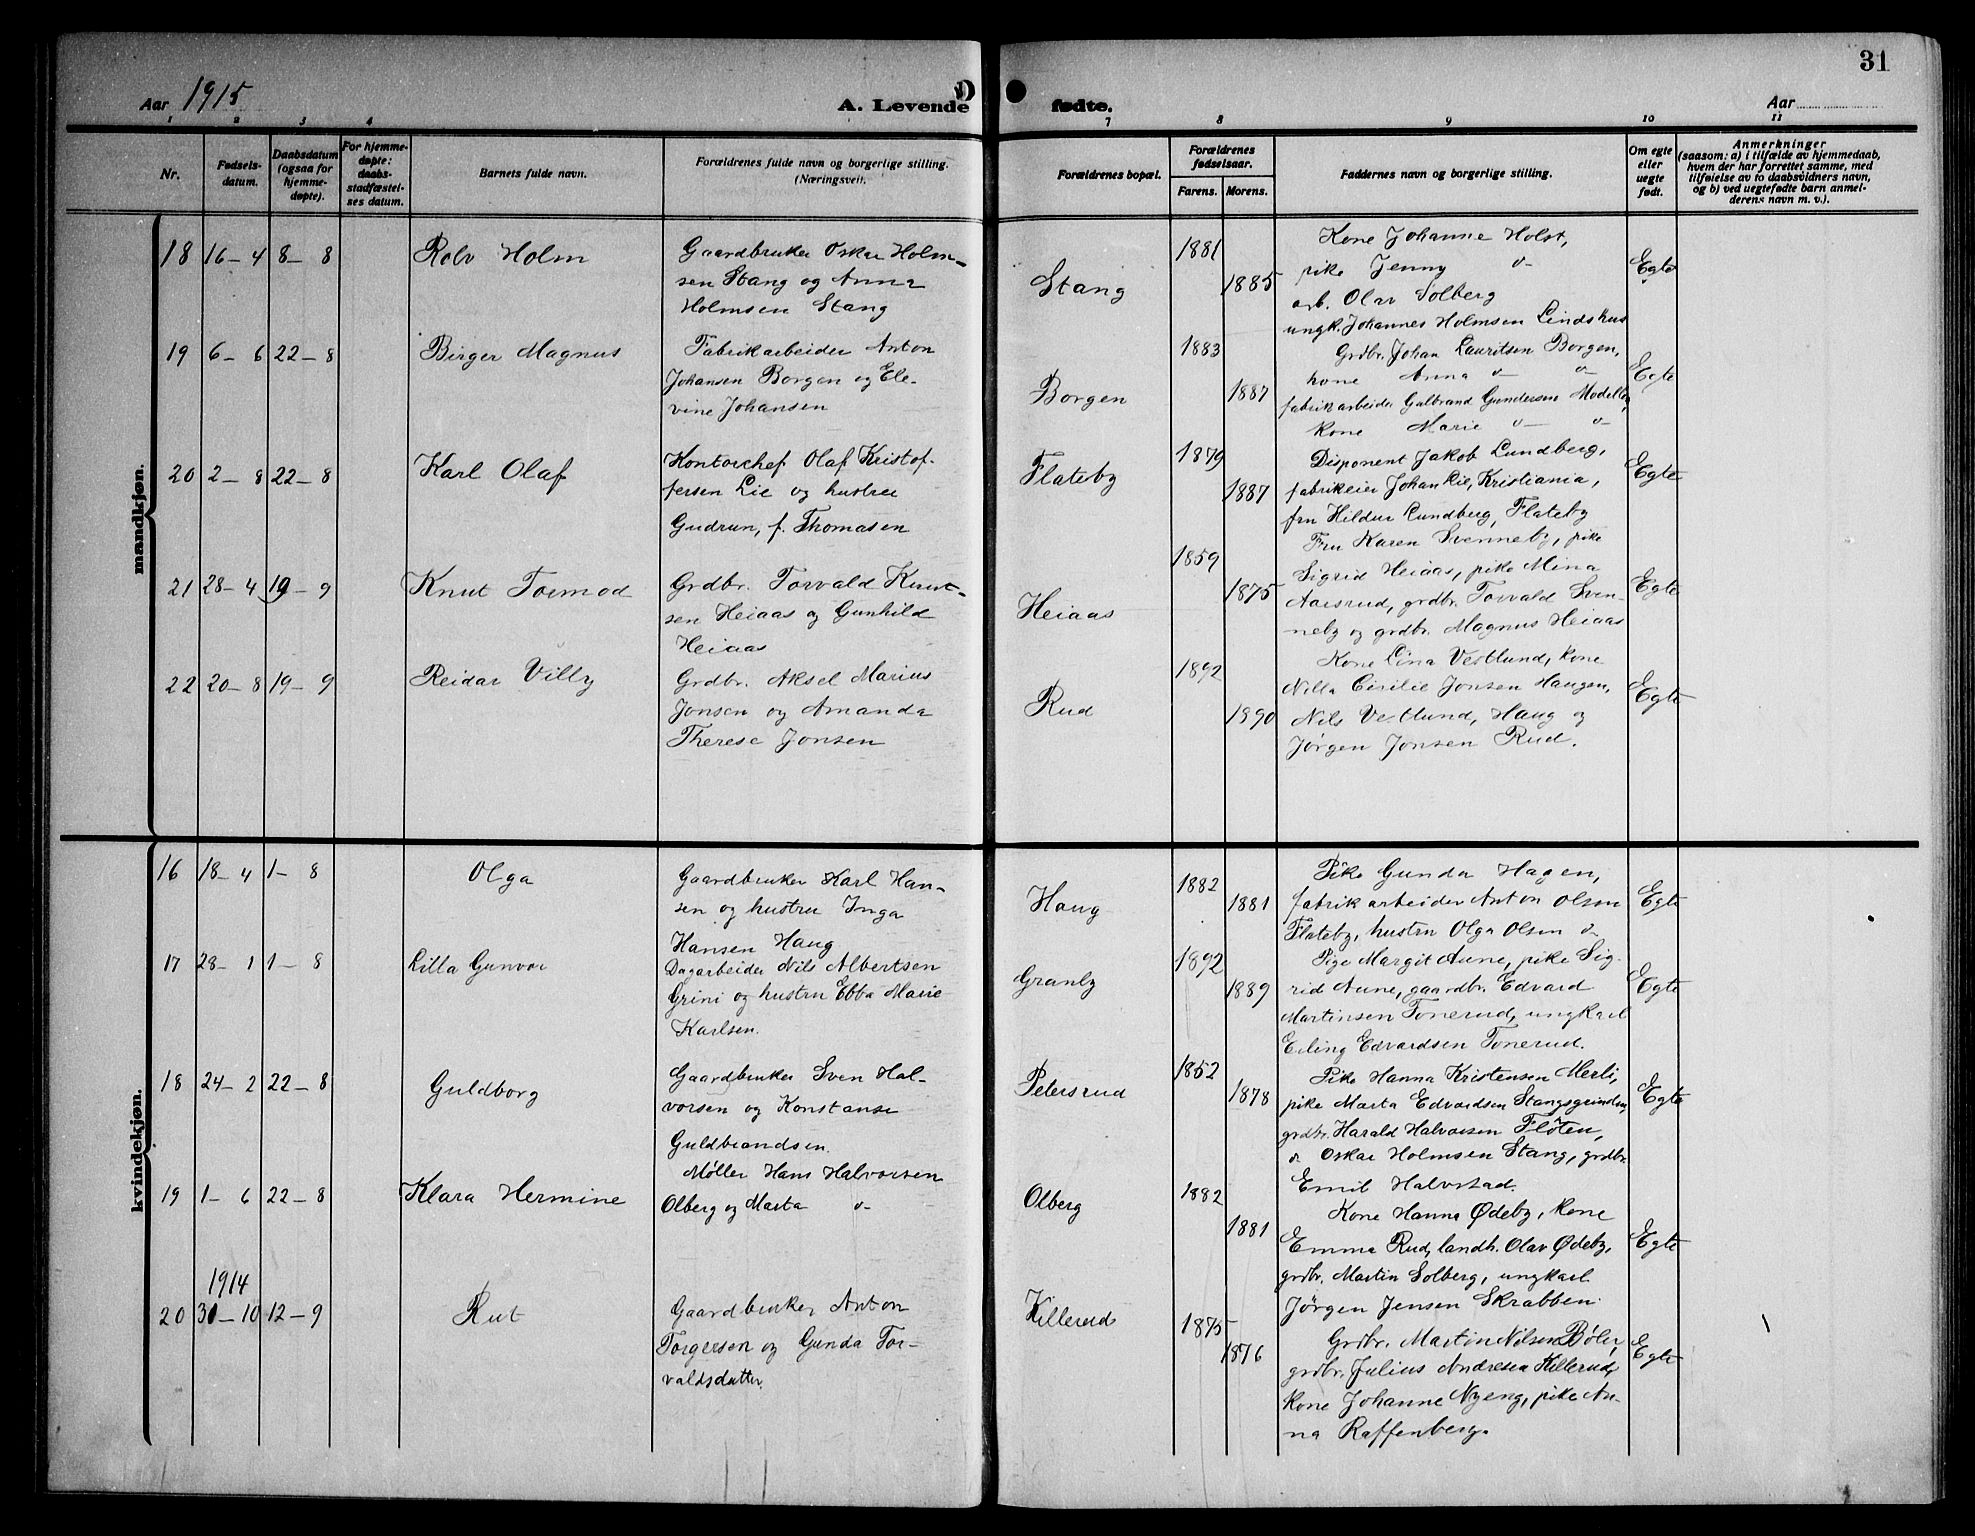 31
Aar 1915
A. Levende fødte.
Aar
1 2 3 4 7 8 9 10 11
Nr.
Fødsels-
datum.
Daabsdatum
(ogsaa for
hjemme-
døpte).
For hjemme-
døpte:
daabs-
stadfæstel-
ses datum.
Barnets fulde navn.
Forældrenes fulde navn og borgerlige stilling.
(Næringsvei).
Forældrenes bopæl.
Forældrenes
fødselsaar.
Farens. Morens.
Faddernes navn og borgerlige stilling.
Om egte
eller
uegte
født.
Anmerkninger
(saasom: a) i tilfælde av hjemmedaab,
hvem der har forrettet samme, med
tilføielse av to daabsvidners navn,
og b) ved uegtefødte barn anmel-
derens navn m. v.).
mandkjøn.
18 16–4 8–8 Rolv Holm
Gaardbruker Oskar Holm-
sen Stang og Anna
Holmsen Stang
Stang
1881
1885
Kone Johanne Holst,
pike Jenny v-
arb. Olav Solberg
ungk. Johannes Holmsen Lindshus
Egte
19 6–6 22–8 Birger Magnus
Fabrikarbeider Anton
Johansen Borgen og Ele-
vine Johansen
Borgen
1883
1887
Grdbr. Johan Lauritsen Borgen,
kone Anna v- v-
fabrikarbeider Gulbrand Gundersen Modellen,
kone Marie v- v-
Egte
20 2–8 22–8 Karl Olaf
Kontorchef Olaf Kristof-
fersen Lie og hustru
Gudrun, f. Thomasen
Flateby
1879
1887
Disponent Jakob Lundberg,
fabrikeier Johan Lie, Kristiania,
fru Hildur Lundberg, Flateby
Egte
21 28–4 19–9 Knut Tormod
Grdbr. Torvald Knut-
sen Heiaas og Gunhild
Heiaas
Heiaas
1859
1875
Fru Karen Svenneby, pike
Sigrid Heiaas, pike Mina
Aaesrud, grdbr. Torvald Sven-
neby og grdbr. Magnus Heiaas
Egte
22 20–8 19–9 Reidar Villy
Grdbr. Aksel Marius
Jonsen og Amanda
Therese Jonsen
Rud
1892
1890
Kone Lina Vestlund, kone
Nilla Cicilie Jonsen Haugen,
Nils Vestlund, Haug og
Jørgen Jonsen Rud.
Egte
kvindekjøn.
16 18–4 1–8 Olga
Gaardbruker Karl Han-
sen og hustru Inga
Hansen Haug
Haug
1882
1881
Pike Gunda Hagen,
fabrikarbeider Anton Olsen
Flateby, hustru Olga Olsen v-
Egte
17 28–1 1–8 Lilla Gunvor
Dagarbeider Nils Albertsen
Grini og hustru Ebba Marie
Karlsen.
Granby
1892
1889
Pige Margit Aune, pike Sig-
rid Aune, gaardbr. Edvard
Martinsen Tonerud, ungkarl
Erling Edvardsen Tonerud.
Egte
18 24–2 22–8 Guldborg
Gaardbruker Sven Hal-
vorsen og Konstanse
Guldbrandsen.
Petersrud
1852
1878
Pike Hanna Kristensen Merli,
pike Marta Edvardsen Stangsgrinden
grdbr. Harald Halvorsen Fløten,
v- Oskar Holmsen Stang, grdbr.
Emil Halvstad.
Egte
19 1–6 22–8 Klara Hermine
Møller Hans Halvorsen
Olberg og Marta v-
Olberg
1882
1881
Kone Hanna Ødeby, kone
Emma Rud, landh. Olav Ødeby,
grdbr. Martin Solberg, ungkarl
Jørgen Jensen Skrabben.
Egte
1914
20 31–10 12–9 Rut
Gaardbruker Anton
Torgersen og Gunda Tor-
valdsdatter.
Killerud
1875
1876
Grdbr. Martin Nilsen Bøler,
grdbr. Julius Andresen Killerud,
kone Johanne Nyeng, pike An-
na Raffenberg.
Egte